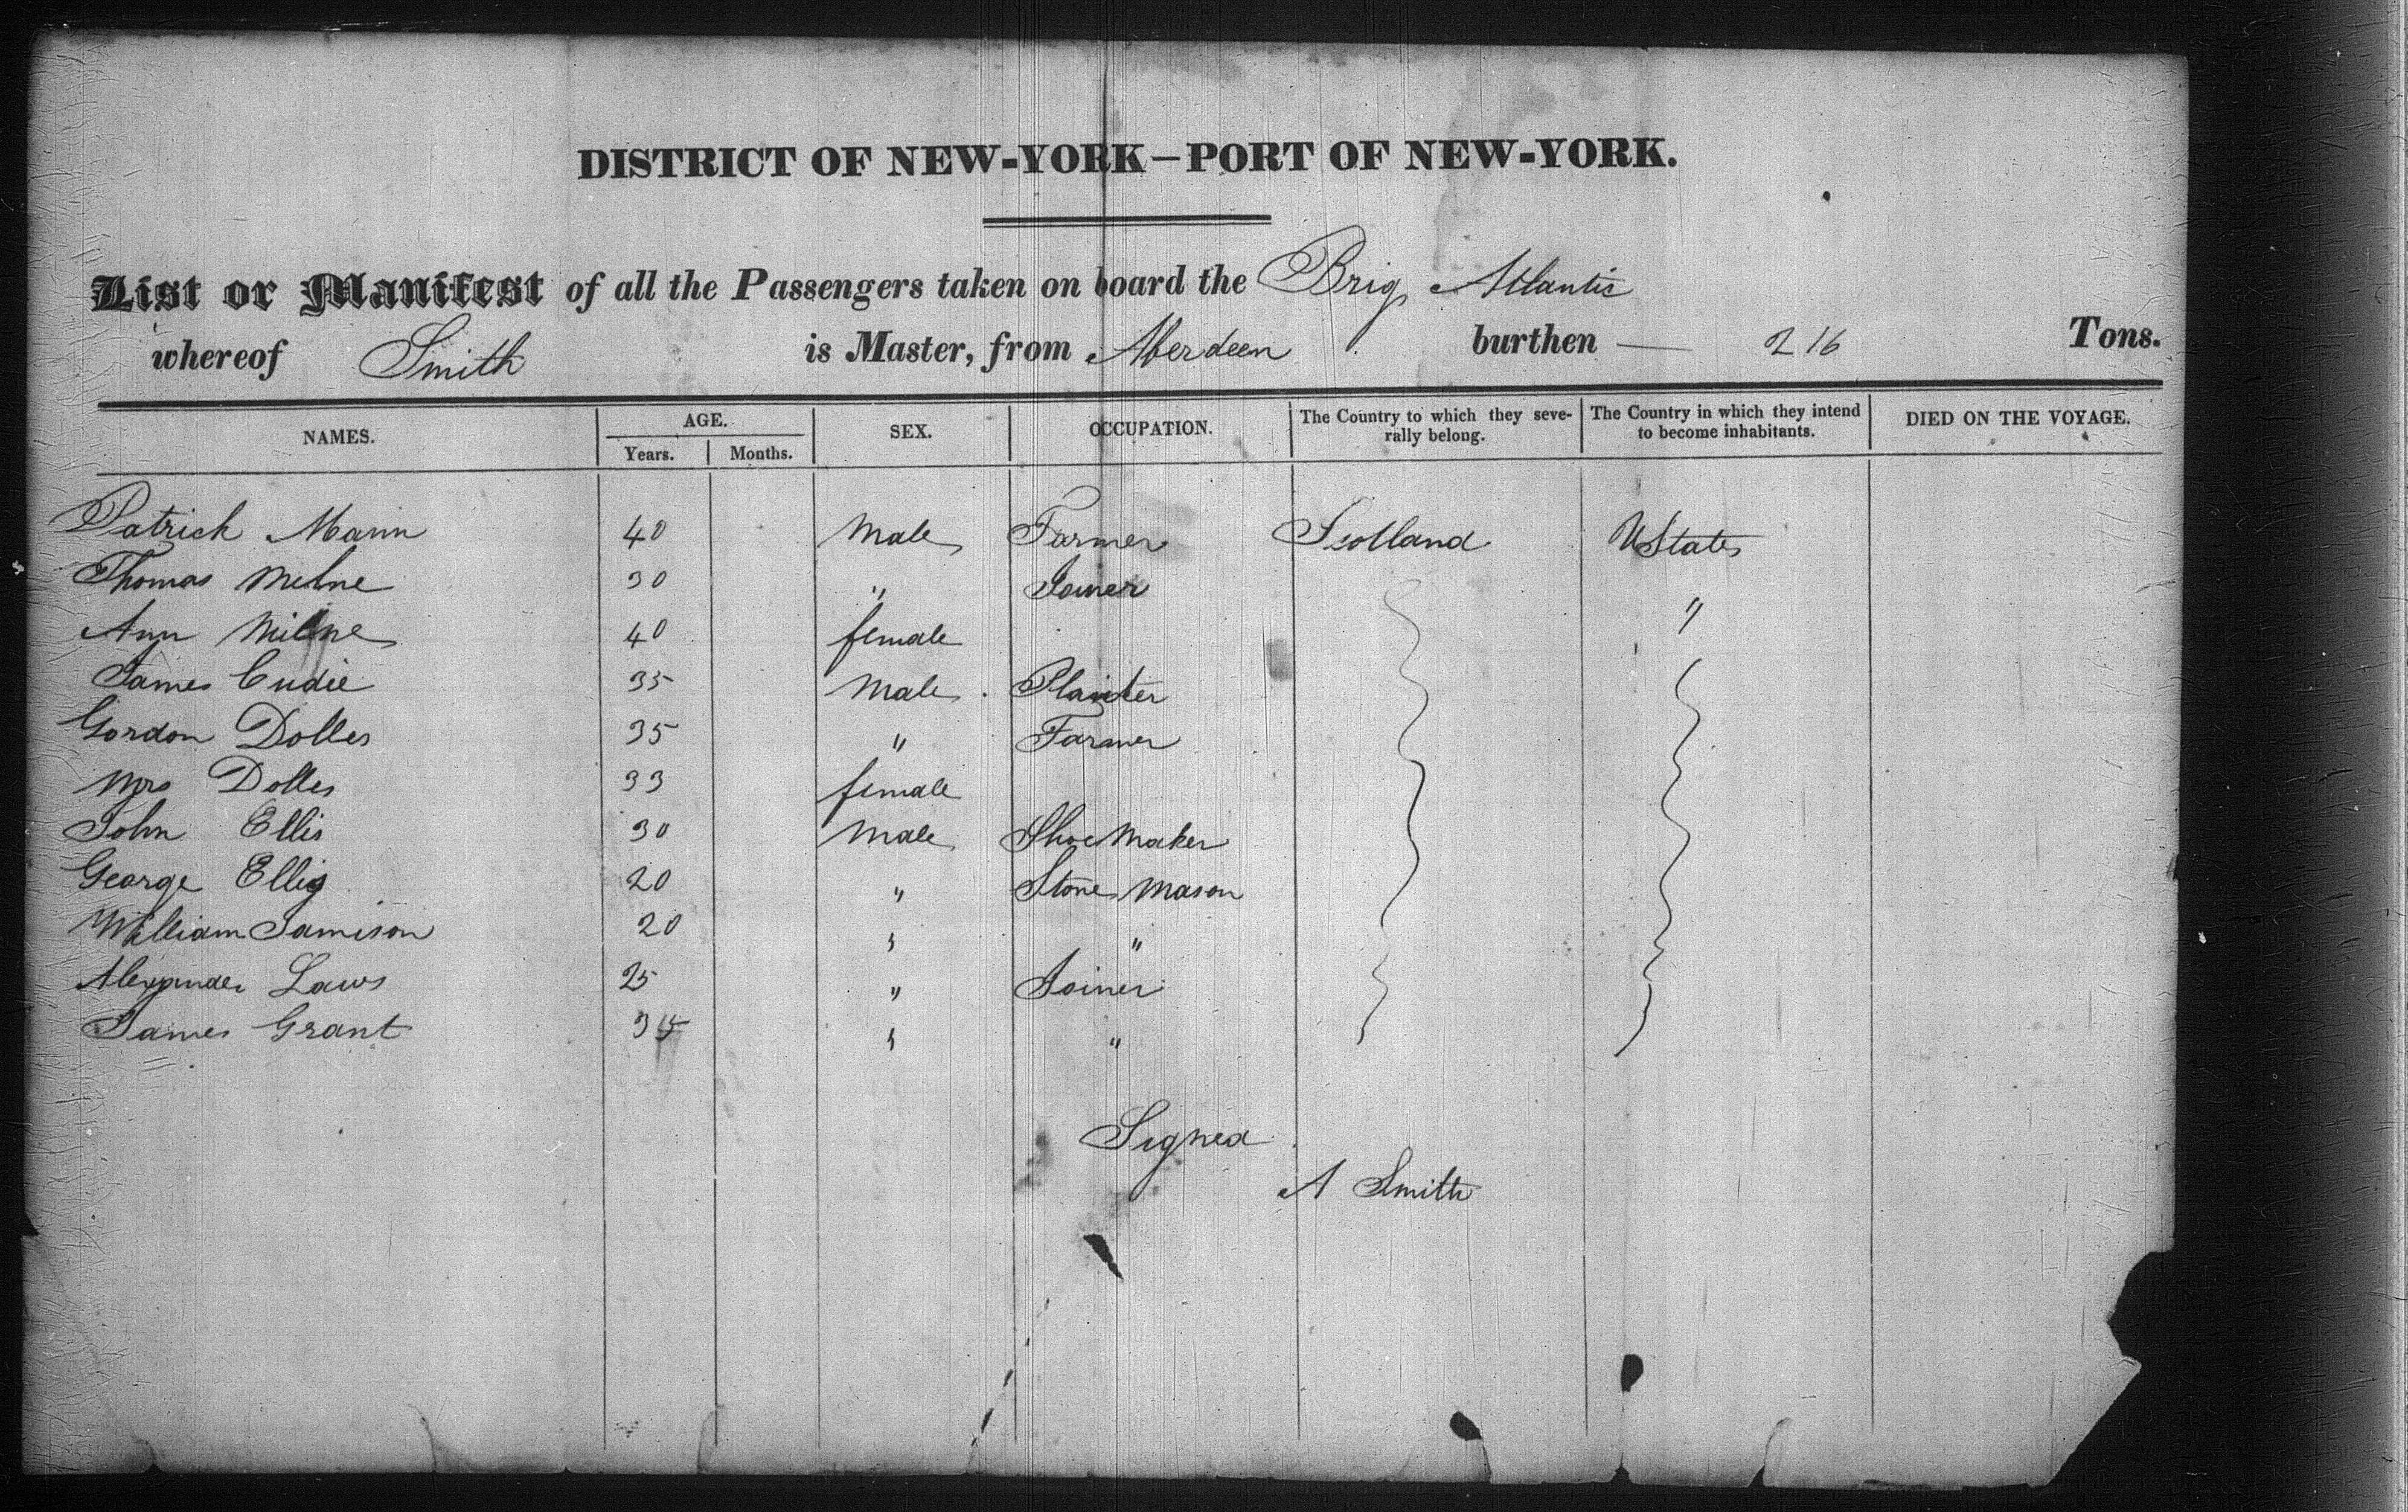 DISTRICT OF NEW-YORK—PORT OF NEW-YORK.
List or Manifest of all the Passengers taken on board the Brig Atlantic
whereof Smith is Master, from Aberdeen burthen — 216 Tons.
NAMES. AGE. Years. Months. SEX. OCCUPATION. The Country to which they severally belong. The Country in which they intend to become inhabitants. DIED ON THE VOYAGE.
Patrick Mann 40 Male Farmer Scotland UStates
Thomas Milne 30 " Joiner "
Ann Milne 40 female
James 35 Male Planter
Gordon Dolles 35 " Farmer
Mrs Dolles 33 female
John Ellis 30 Male Shoe Maker
George Ellis 20 " Stone Mason
William Jamison 20 " "
Alexander Laws 25 " Joiner
James Grant " "
Signed
A Smith